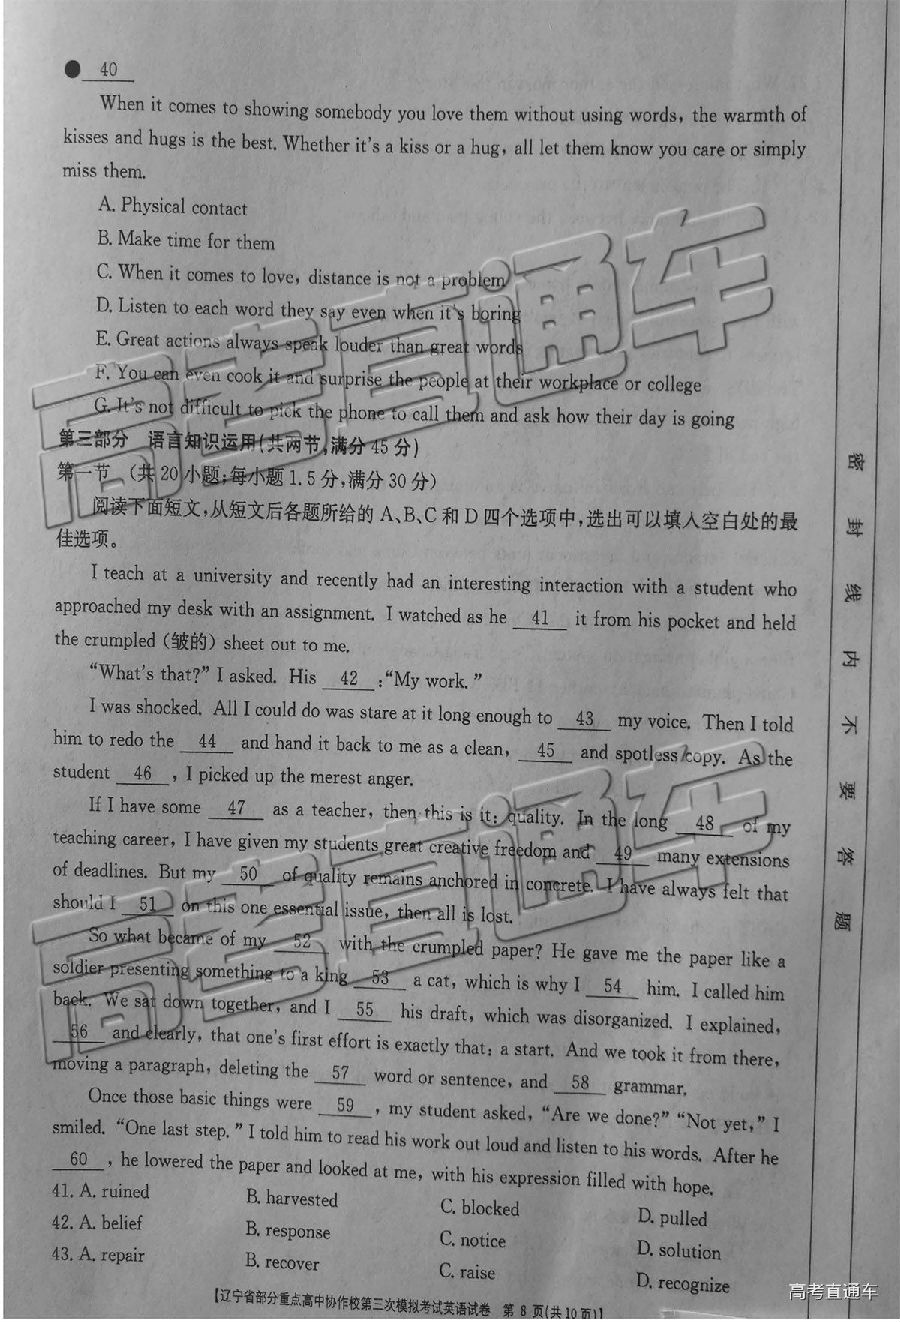 ● 40
When it comes to showing somebody you love them without using words, the warmth of
kisses and hugs is the best. Whether it's a kiss or a hug, all let them know you care or simply
miss them.
A. Physical contact
B. Make time for them
C. When it comes to love, distance is not a problem
D. Listen to each word they say even when it's boring
E. Great actions always speak louder than great words
F. You can even cook it and surprise the people at their workplace or college
G. It's not difficult to pick the phone to call them and ask how their day is going
第三部分 语言知识运用(共两节,满分45分)
第一节 (共20小题;每小题1.5分,满分30分)
阅读下面短文,从短文后各题所给的A、B、C和D四个选项中,选出可以填入空白处的最
佳选项。
I teach at a university and recently had an interesting interaction with a student who
approached my desk with an assignment. I watched as he 41 it from his pocket and held
the crumpled (皱的) sheet out to me.
"What's that?" I asked. His 42 :"My work."
I was shocked. All I could do was stare at it long enough to 43 my voice. Then I told
him to redo the 44 and hand it back to me as a clean, 45 and spotless copy. As the
student 46 , I picked up the merest anger.
If I have some 47 as a teacher, then this is it: quality. In the long 48 of my
teaching career, I have given my students great creative freedom and 49 many extensions
of deadlines. But my 50 of quality remains anchored in concrete. I have always felt that
should I 51 on this one essential issue, then all is lost.
So what became of my 52 with the crumpled paper? He gave me the paper like a
soldier presenting something to a king 53 a cat, which is why I 54 him. I called him
back. We sat down together, and I 55 his draft, which was disorganized. I explained,
56 and clearly, that one's first effort is exactly that: a start. And we took it from there,
moving a paragraph, deleting the 57 word or sentence, and 58 grammar.
Once those basic things were 59 , my student asked, "Are we done?" "Not yet," I
smiled. "One last step." I told him to read his work out loud and listen to his words. After he
60 , he lowered the paper and looked at me, with his expression filled with hope.
41. A. ruined B. harvested C. blocked D. pulled
42. A. belief B. response C. notice D. solution
43. A. repair B. recover C. raise D. recognize
【辽宁省部分重点高中协作校第三次模拟考试英语试卷 第8页(共10页)】
密封线内不要答题
高考直通车
高考直通车
高考直通车